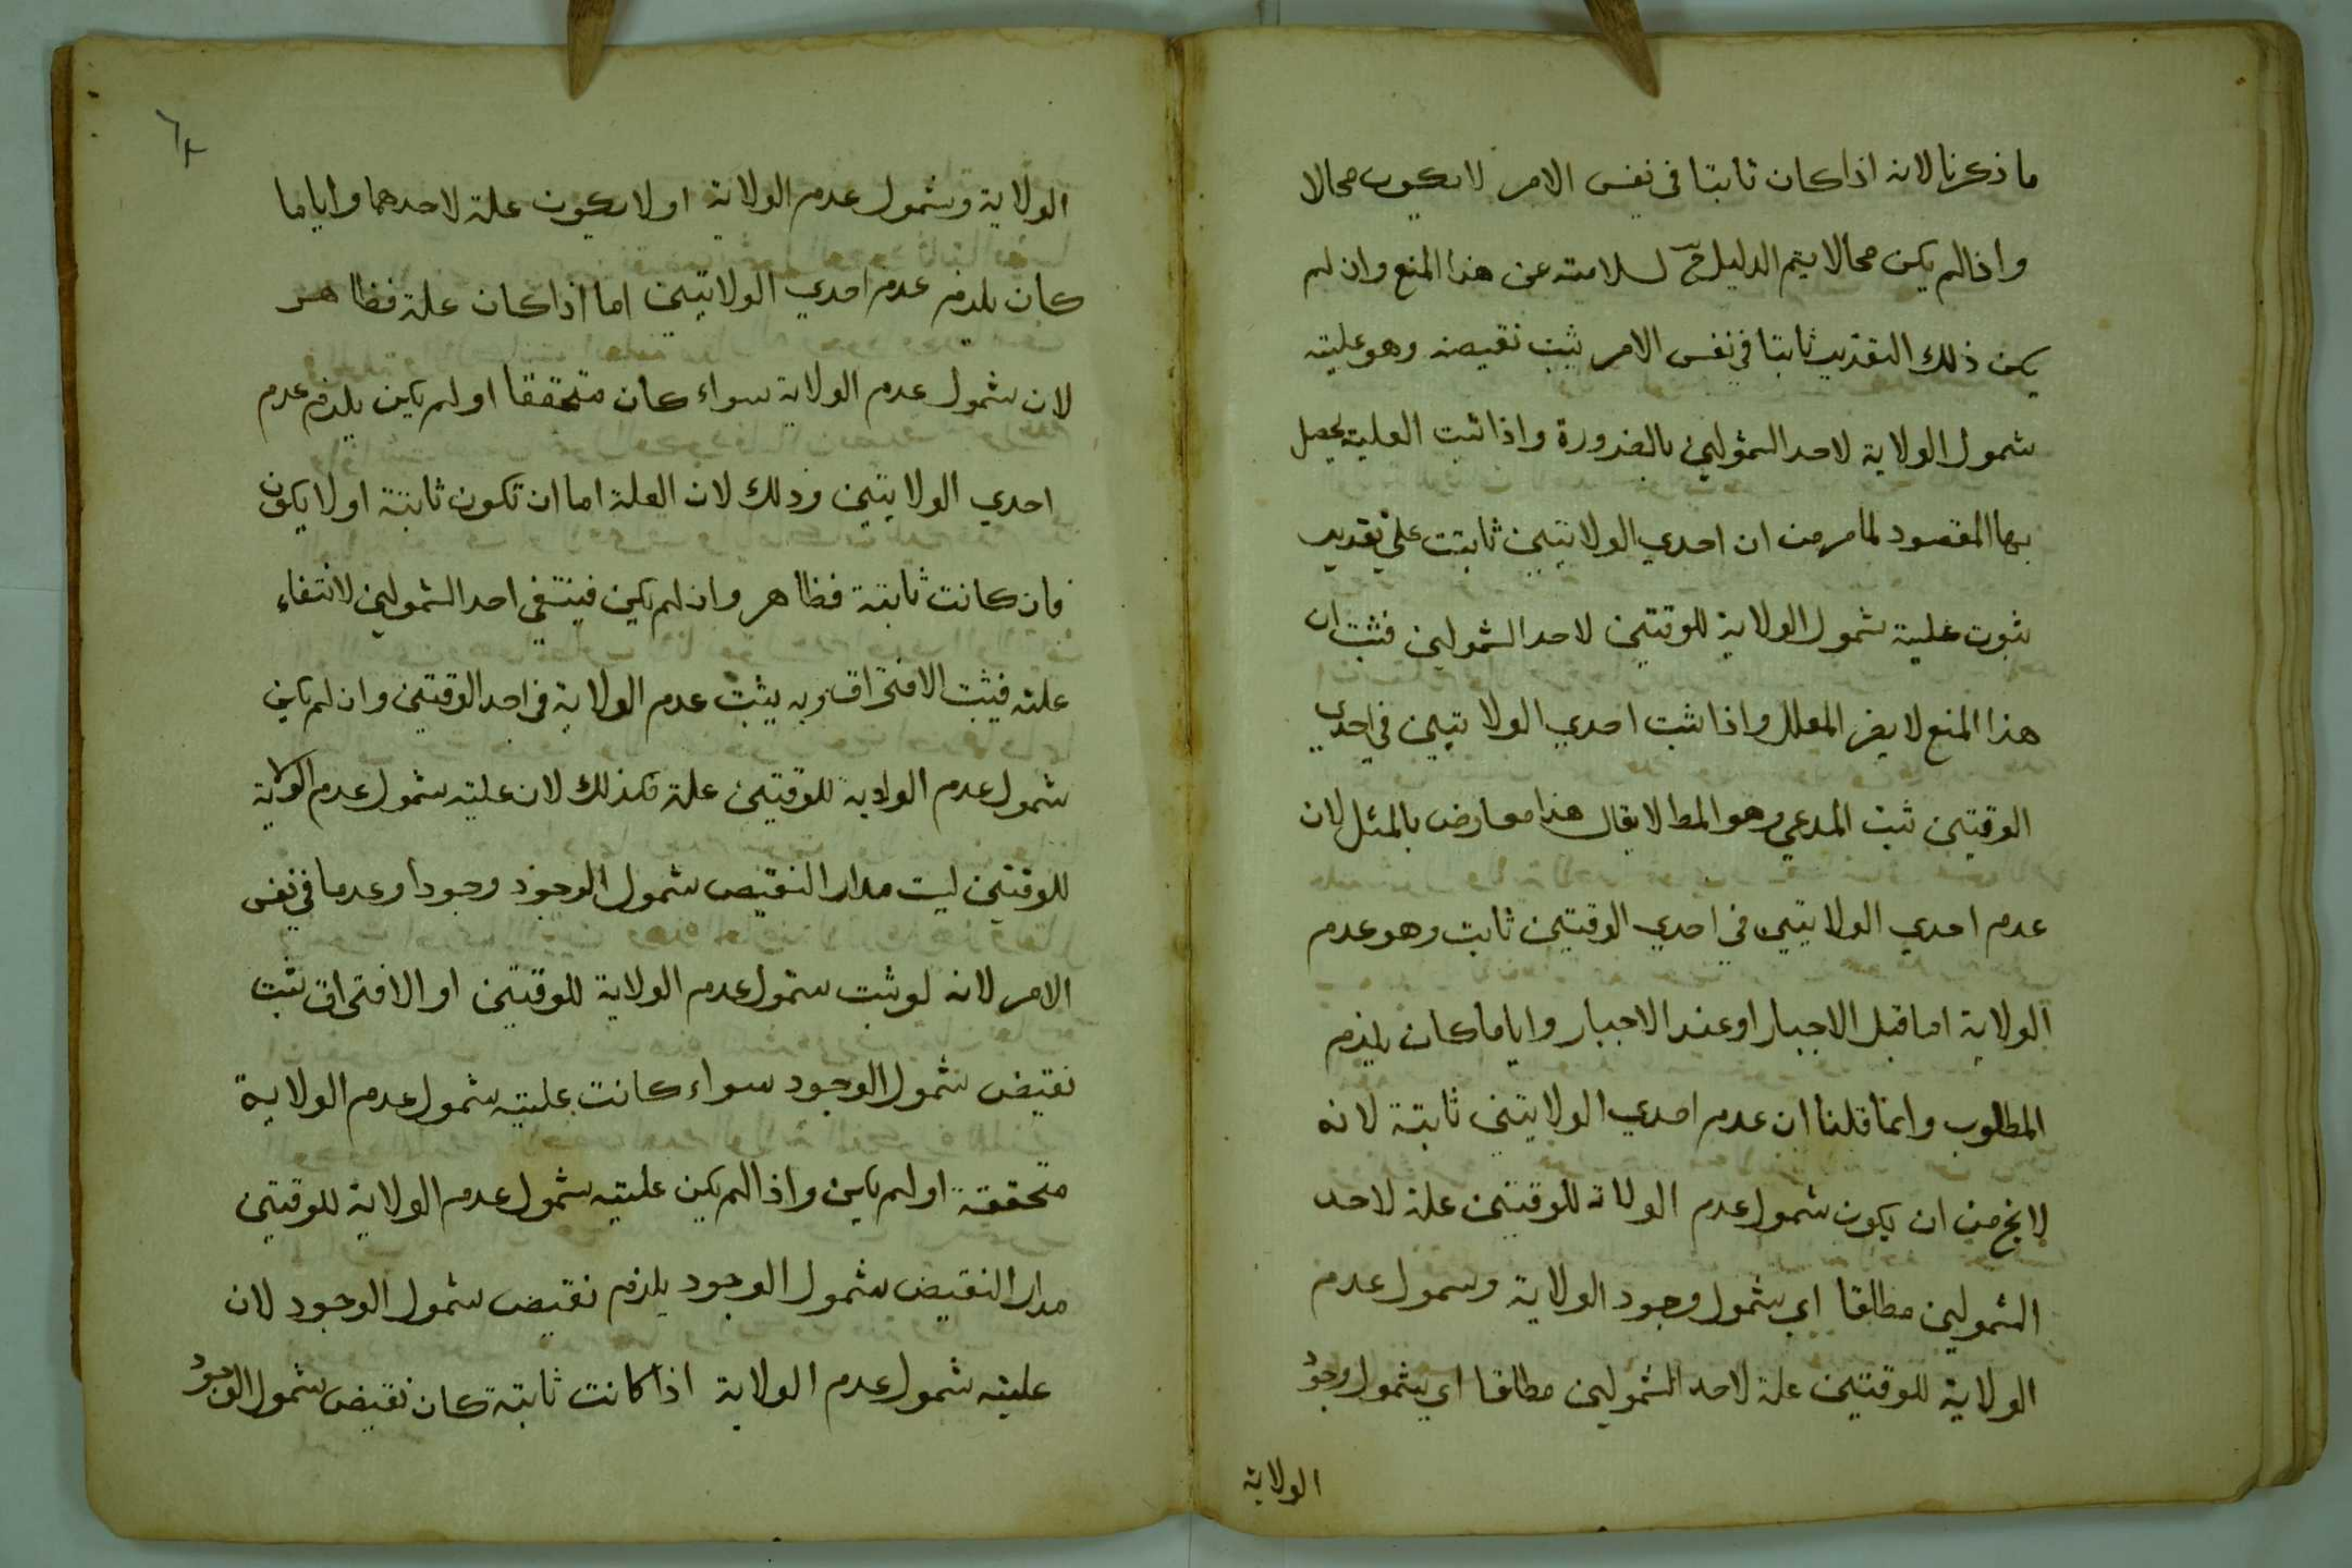 ما ذكرنا لانه اذا كان ثابتا في نفس الامر لا يكون محالا
واذا لم يكن محالا يتم الدليل ح لسلامته عن هذا المنع وان لم
يكن ذلك التقدير ثابتا في نفس الامر يثبت نقيضه وهو علية
شمول الولاية لاحد الشمولين بالضرورة واذا ثبت العلية يحصل
بها المقصود لما مر من ان احدي الولايتين ثابتت علي تقدير
ثبوت علية شمول الولاية للوقتين لاحد الشمولين فثبت ان
هذا المنع لا يضر المعلل واذا ثبت احدي الولايتين في احدي
الوقتين ثبت المدعي وهو المط لا يقال هذا معارض بالمثل لان
عدم احدي الولايتين في احدي الوقتين ثابت وهو عدم
الولاية اما قبل الاجبار او عند الاجبار واياما كان يلزم
المطلوب وانما قلنا ان عدم احدي الولايتين ثابتة لانه
لا يخ من ان يكون شمول عدم الولاية للوقتين علة لاحد
الشمولين مطلقا اي شمول وجود الولاية وشمول عدم
الولاية للوقتين علة لاحد الشمولين مطلقا اي شمول وجود
الولاية
الولاية وشمول عدم الولاية او لا يكون علة لاحدهما واياما
كان يلزم عدم احدي الولايتين اما اذا كان علة فظاهر
لان شمول عدم الولاية سواء كان متحققا او لم يكن يلزم عدم
احدي الولايتين وذلك لان العلة اما ان تكون ثابتة او لا يكون
فان كانت ثابتة فظاهر وان لم يكن فينتفي احد الشمولين لانتفاء
علته فيثبت الافتراق وبه يثبت عدم الولاية في احد الوقتين وان لم يكن
شمول عدم الولاية للوقتين علة فكذلك لان علية شمول عدم الولاية
للوقتين ليت مدار النقيض شمول الوجود وجودا وعدما في نفس
الامر لانه لو ثبت شمول عدم الولاية للوقتين او الافتراق ثبت
نقيض شمول الوجود سواء كانت علية شمول عدم الولاية
متحققة او لم يكن واذا لم يكن علية شمول عدم الولاية للوقتين
مدار النقيض شمول الوجود يلزم نقيض شمول الوجود لان
علية شمول عدم الولاية اذا كانت ثابتة كان نقيض شمول الوجود